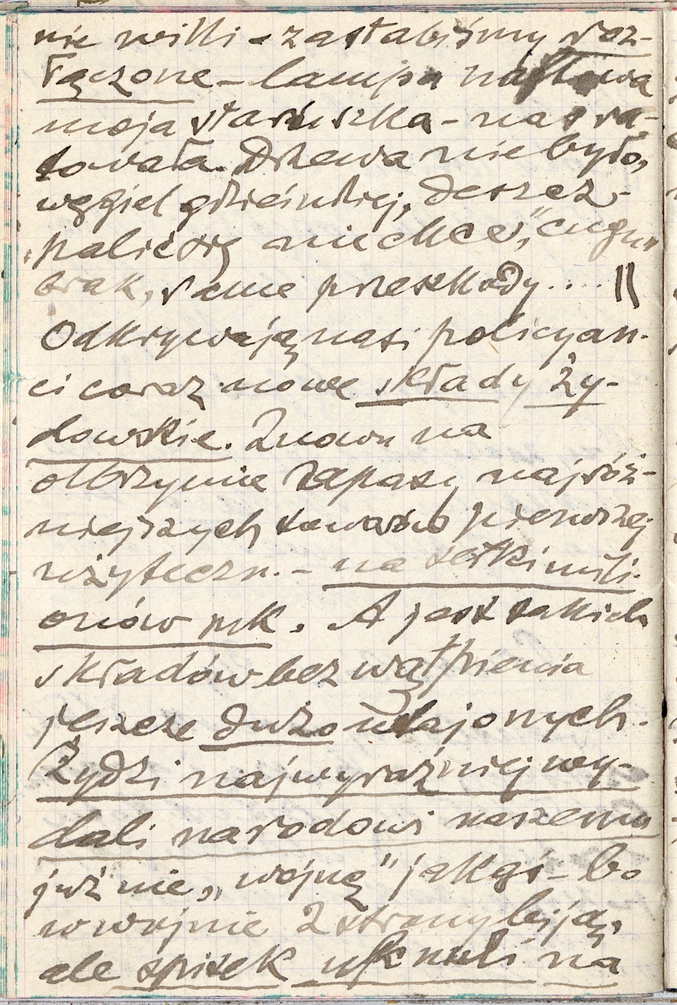 nie wilki - zastaliśmy roz-
łączone - lampa naftowa
moja staruszka - nas ra-
towała. Drzewa nie było,
węgiel gdzieindziej, deszcz -
palić się nie chce, "cugu"
brak, same przeszkody .... ||
Odkrywają nasi policyan-
ci coraz nowe składy ży-
dowskie. Znowu na
olbrzymie zapasy najróż-
niejszych towarów pierwszej
użyteczn. - na setki mili-
onów mk. A jest takich
składów bez wątpienia
jeszcze dużo utajonych.
Żydzi najwyraźniej wy-
dali narodowi naszemu
już nie "wojnę" jakąś - bo
w wojnie 2 strony biją,
ale spisek uknuli na